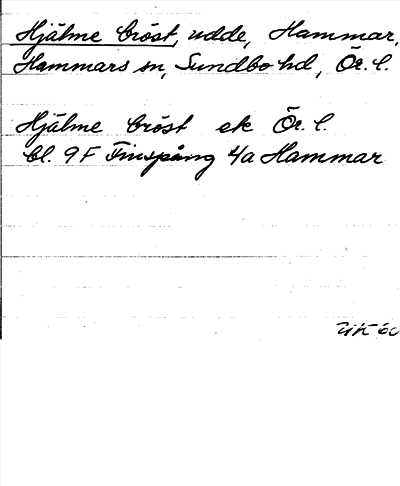 Hjälme bröst, udde, Hammar,
Hammars sn, Sundbo hd, Ör. l.
Hjälme bröst ek Ör. l.
bl. 9F Finspång 4/a Hammar